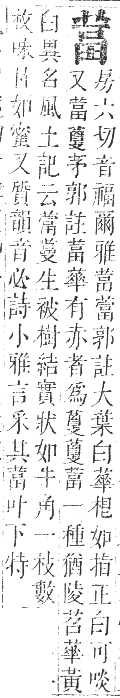 葍
房六切音福爾雅葍䔰郭註大葉白華根如指正白可啖
又葍藑茅郭註葍華有赤者爲藑藑葍一種猶陵苕華黃
白異名風土記云葍蔓生被樹結實狀如牛角一枝數
枚味甘如蜜又質韻音必詩小雅言采其葍叶下特